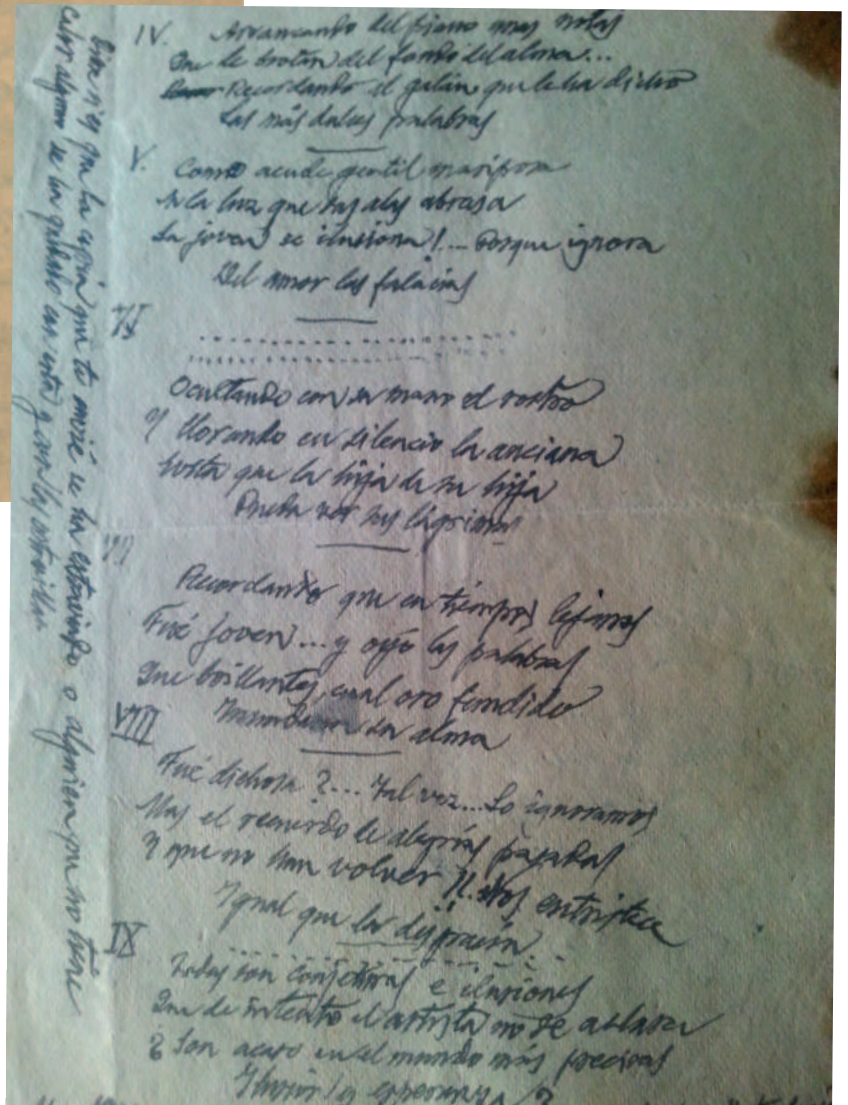 IV. Arrancando del piano unas notas
Que le brotan del fondo del alma...
Recordando el galán que le ha dicho
Las más dulces palabras
V. Como acude gentil mariposa
A la luz que sus alas abrasa
La joven se ilusiona!... Porque ignora
Del amor las falacias
VI
Ocultando con su mano el rostro
Y llorando en silencio la anciana
que la hija de su hija
Pueda ver sus lágrimas
VII
Recordando que en tiempos lejanos
Fué joven... y oyó las palabras
Que brillantes, cual oro fundido
su alma
VIII
Fué dichosa?... Tal vez... Lo ignoramos
Mas el recuerdo de alegrías pasadas
Y que no han volver entristece
Igual que la desgracia
IX
Todas son conjeturas e ilusiones
Que de intento el artista no se aclara
¿Son acaso en el mundo más preciosas
y esperanza?
Bien es que la copia que te envié se ha extraviado o alguien que no tiene
calor alguno se ha quedado con esta y con las